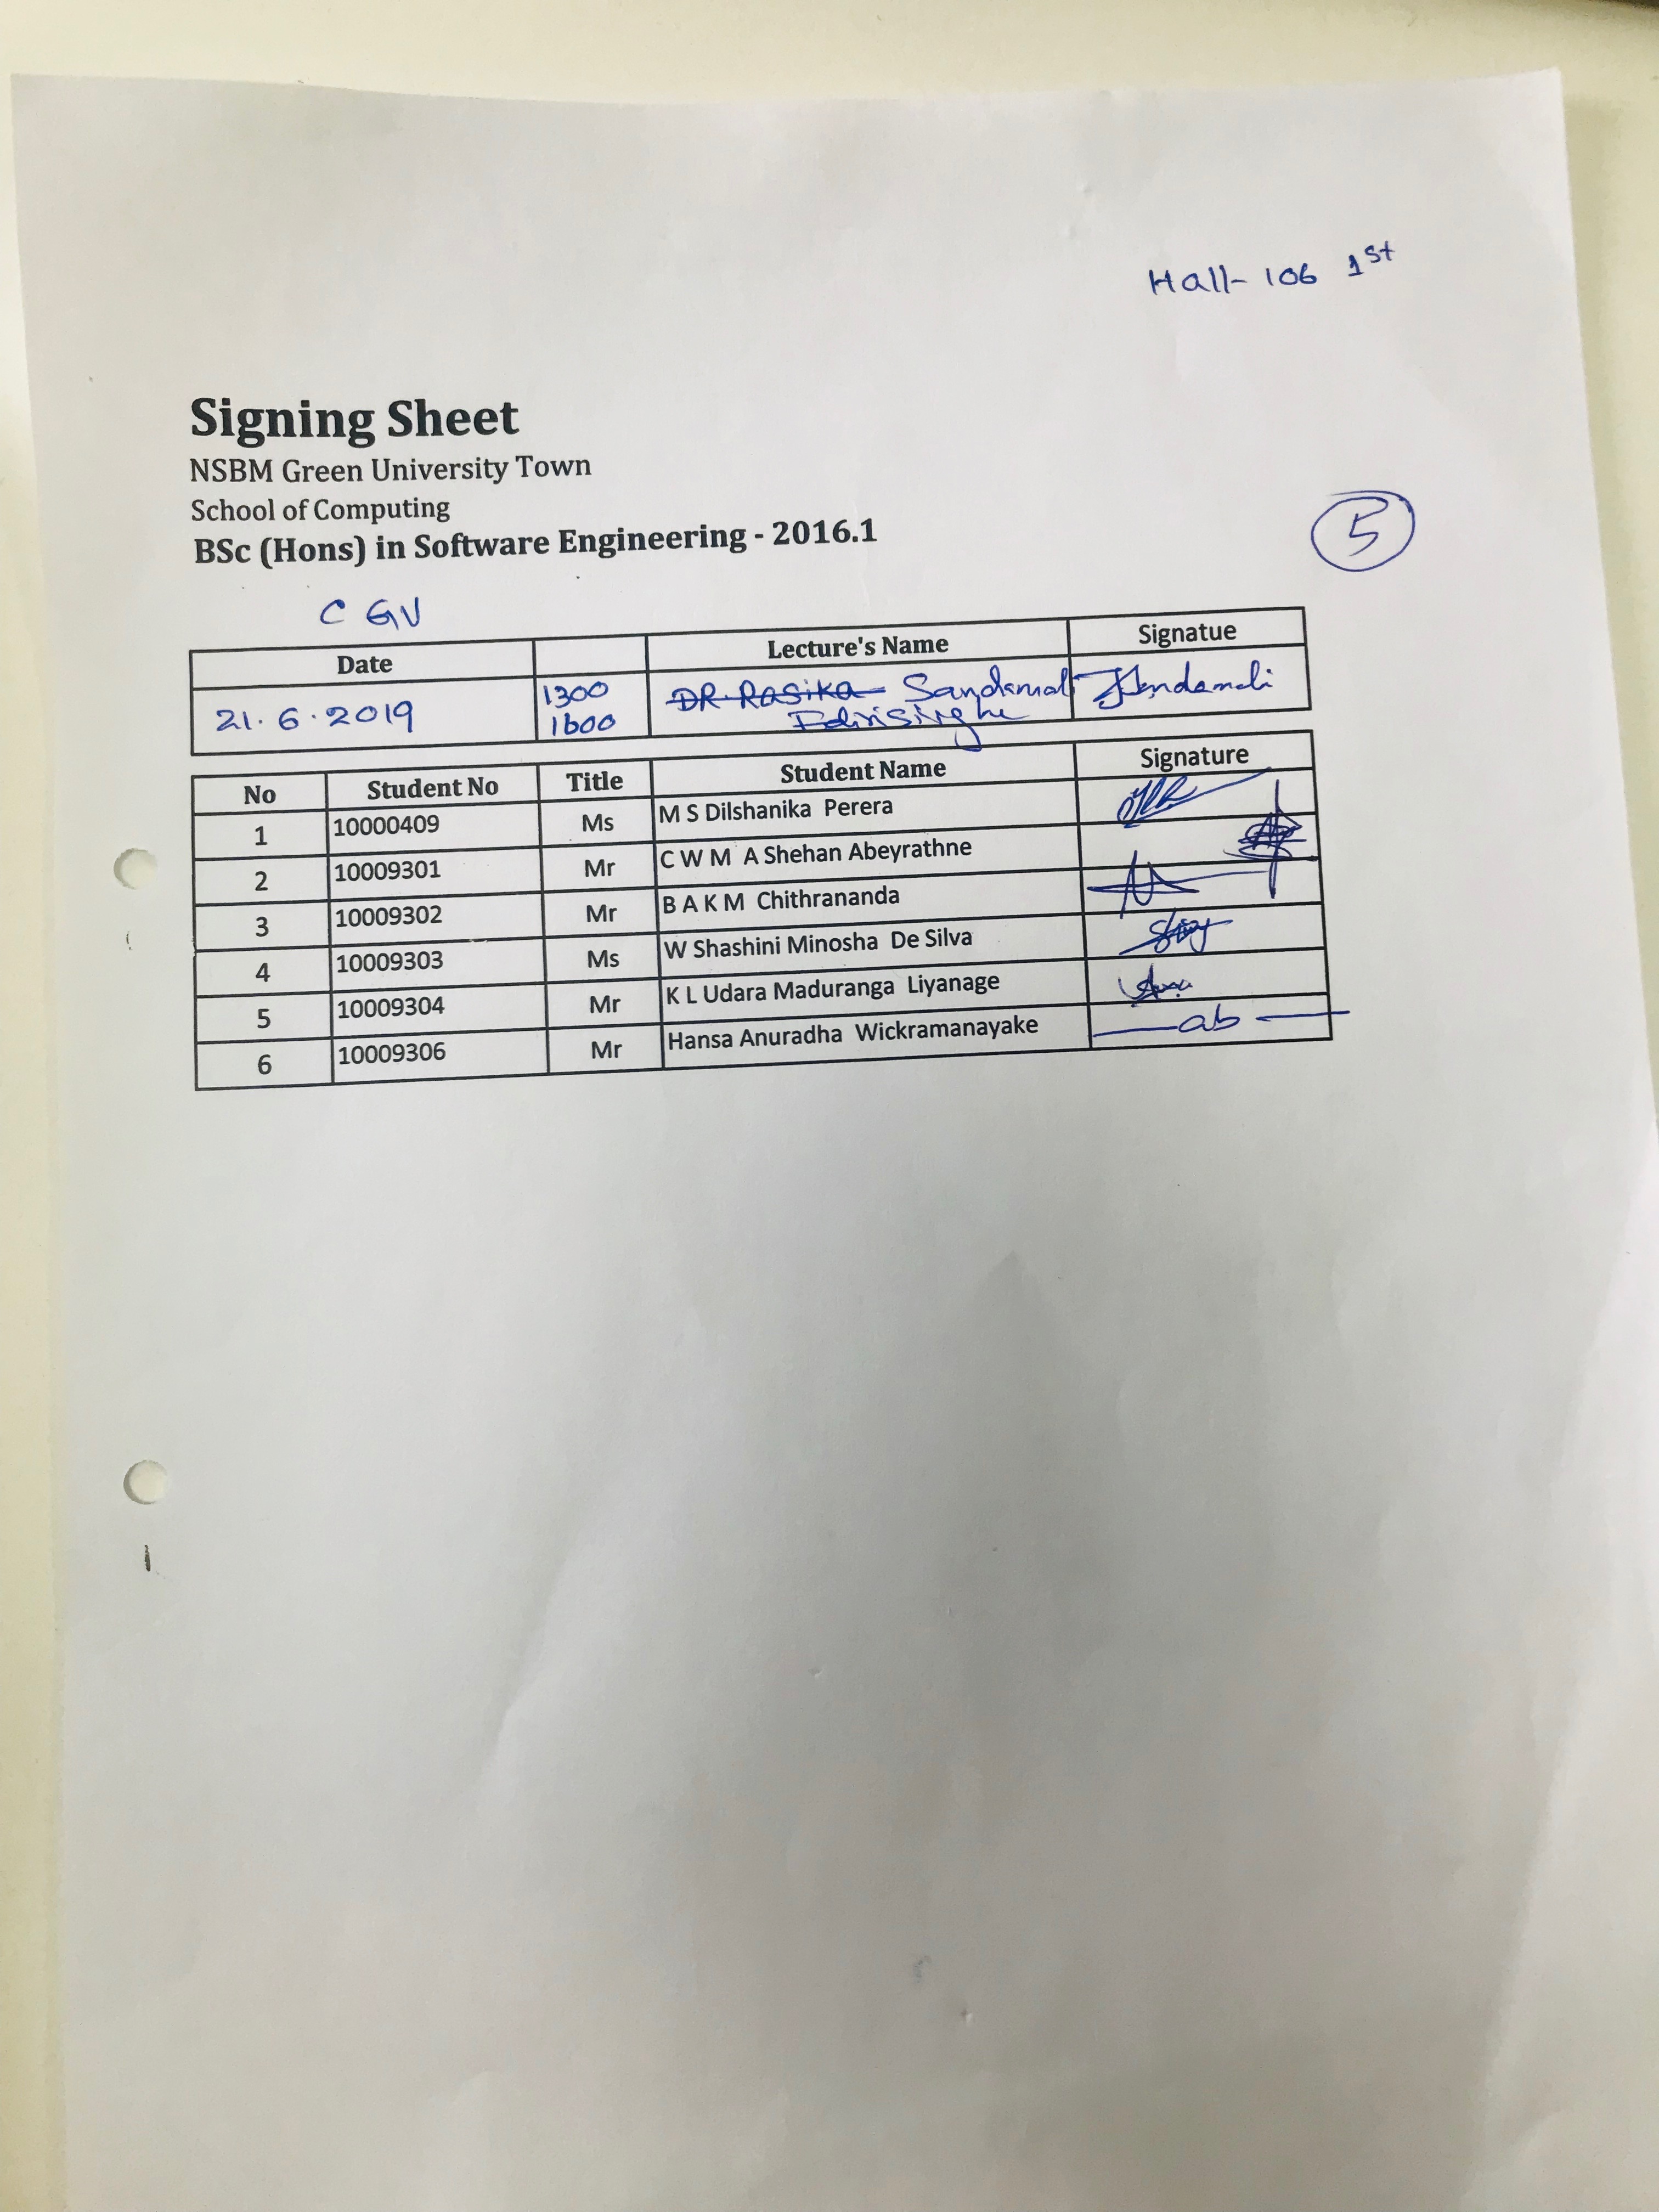 Hall- 106 1st
Signing Sheet
NSBM Green University Town
School of Computing
BSc (Hons) in Software Engineering - 2016.1
5
C GV
Date Lecture's Name Signatue
21.6.2019 1300 1600 DR. Rasika Sandamal Edirisinghe
No Student No Title Student Name Signature
1 10000409 Ms M S Dilshanika Perera
2 10009301 Mr C W M A Shehan Abeyrathne
3 10009302 Mr B A K M Chithrananda
4 10009303 Ms W Shashini Minosha De Silva
5 10009304 Mr K L Udara Maduranga Liyanage
6 10009306 Mr Hansa Anuradha Wickramanayake ab